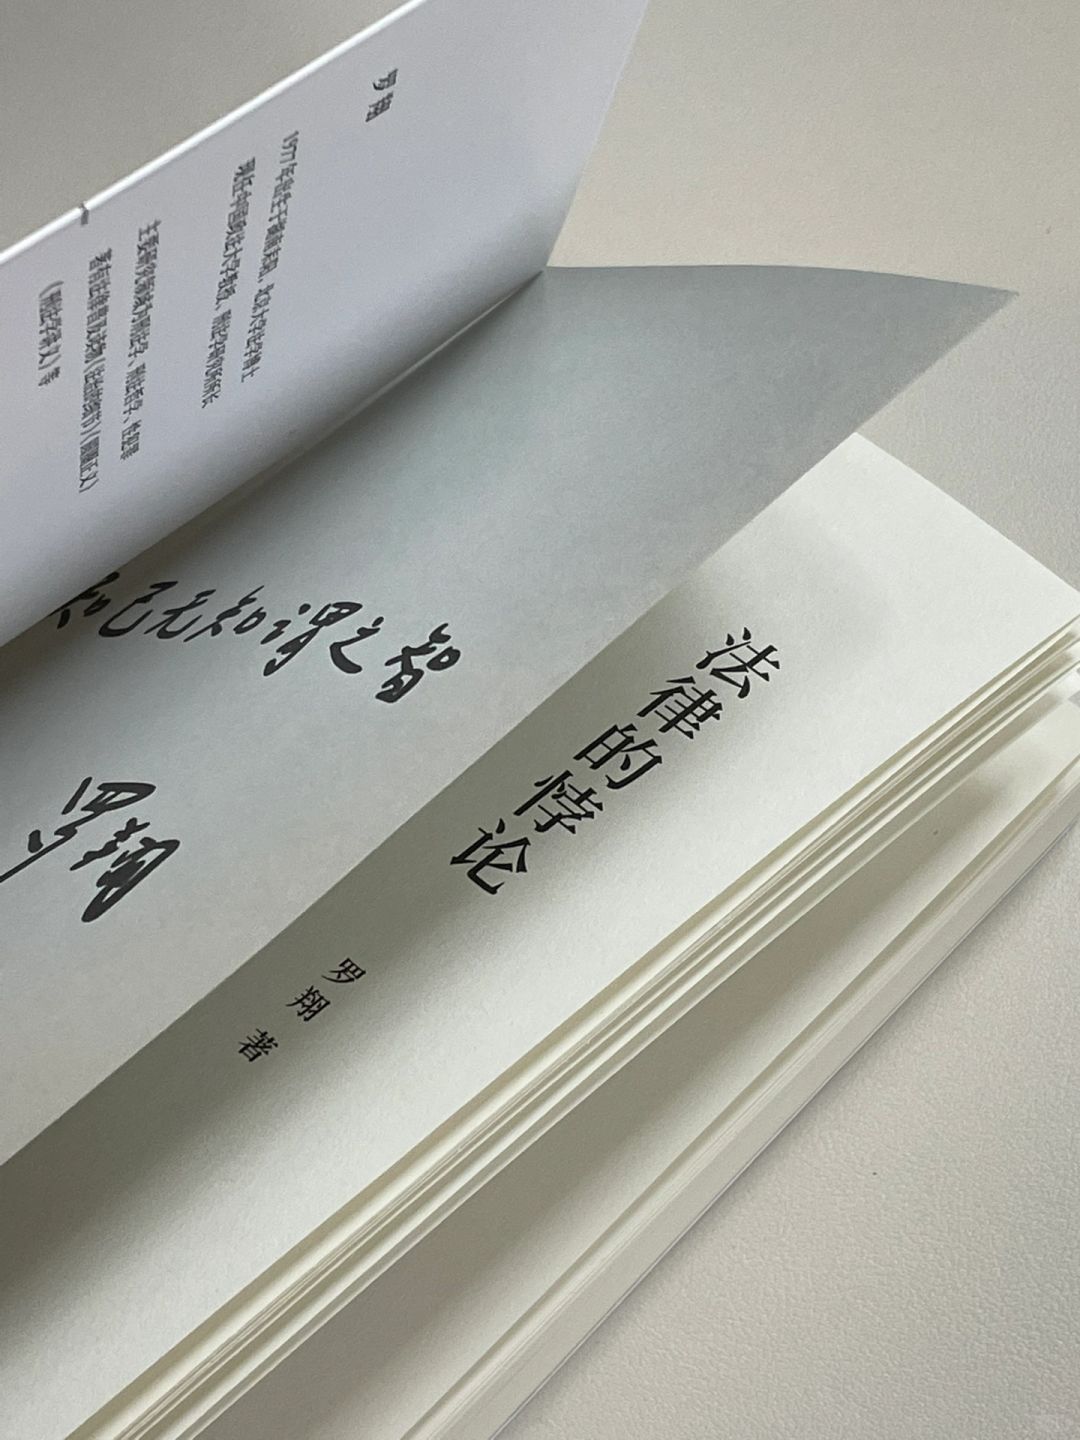 罗翔
1977年出生于湖南耒阳,北京大学法学博士
现任中国政法大学教授、刑法学研究所所长
主要研究领域为刑法学、刑法哲学、性犯罪
著有法律普及读物《法治的细节》《圆圈正义》
《刑法学讲义》等
知己无知谓之智
罗翔
法律的悖论
罗翔 著